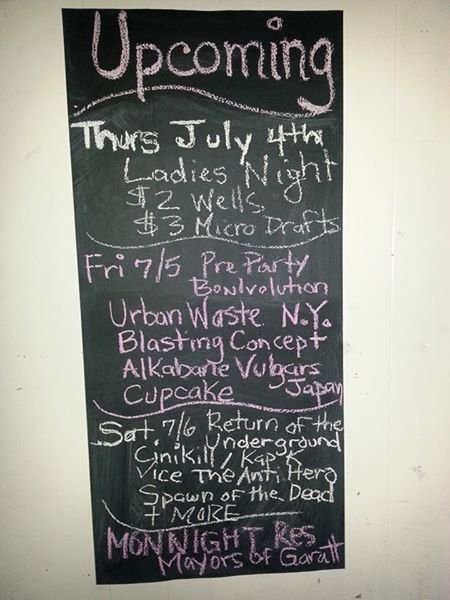 Upcoming
Thurs July 4th
Ladies Night
$2 Wells
$3 Micro Drafts
Fri 7/5 Pre Party
Bowlvolution
Urban Waste N.Y.
Blasting Concept
Alkabane Vulgars
Cupcake Japan
Sat. 7/6 Return of the
Underground
Cinikill / Kap K
Vice The Anti Hero
Spawn of the Dead
+ MORE
MON NIGHT Res
Mayors of Garatt